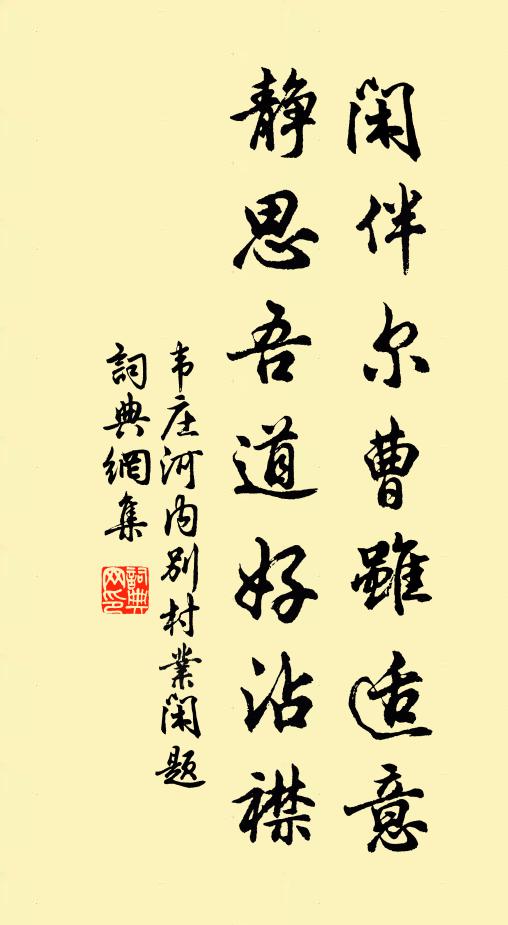 闲伴尔曹雖适意
静思吾道好沾襟
韦庄河内别村業闲题
詞典網集
詞典網印